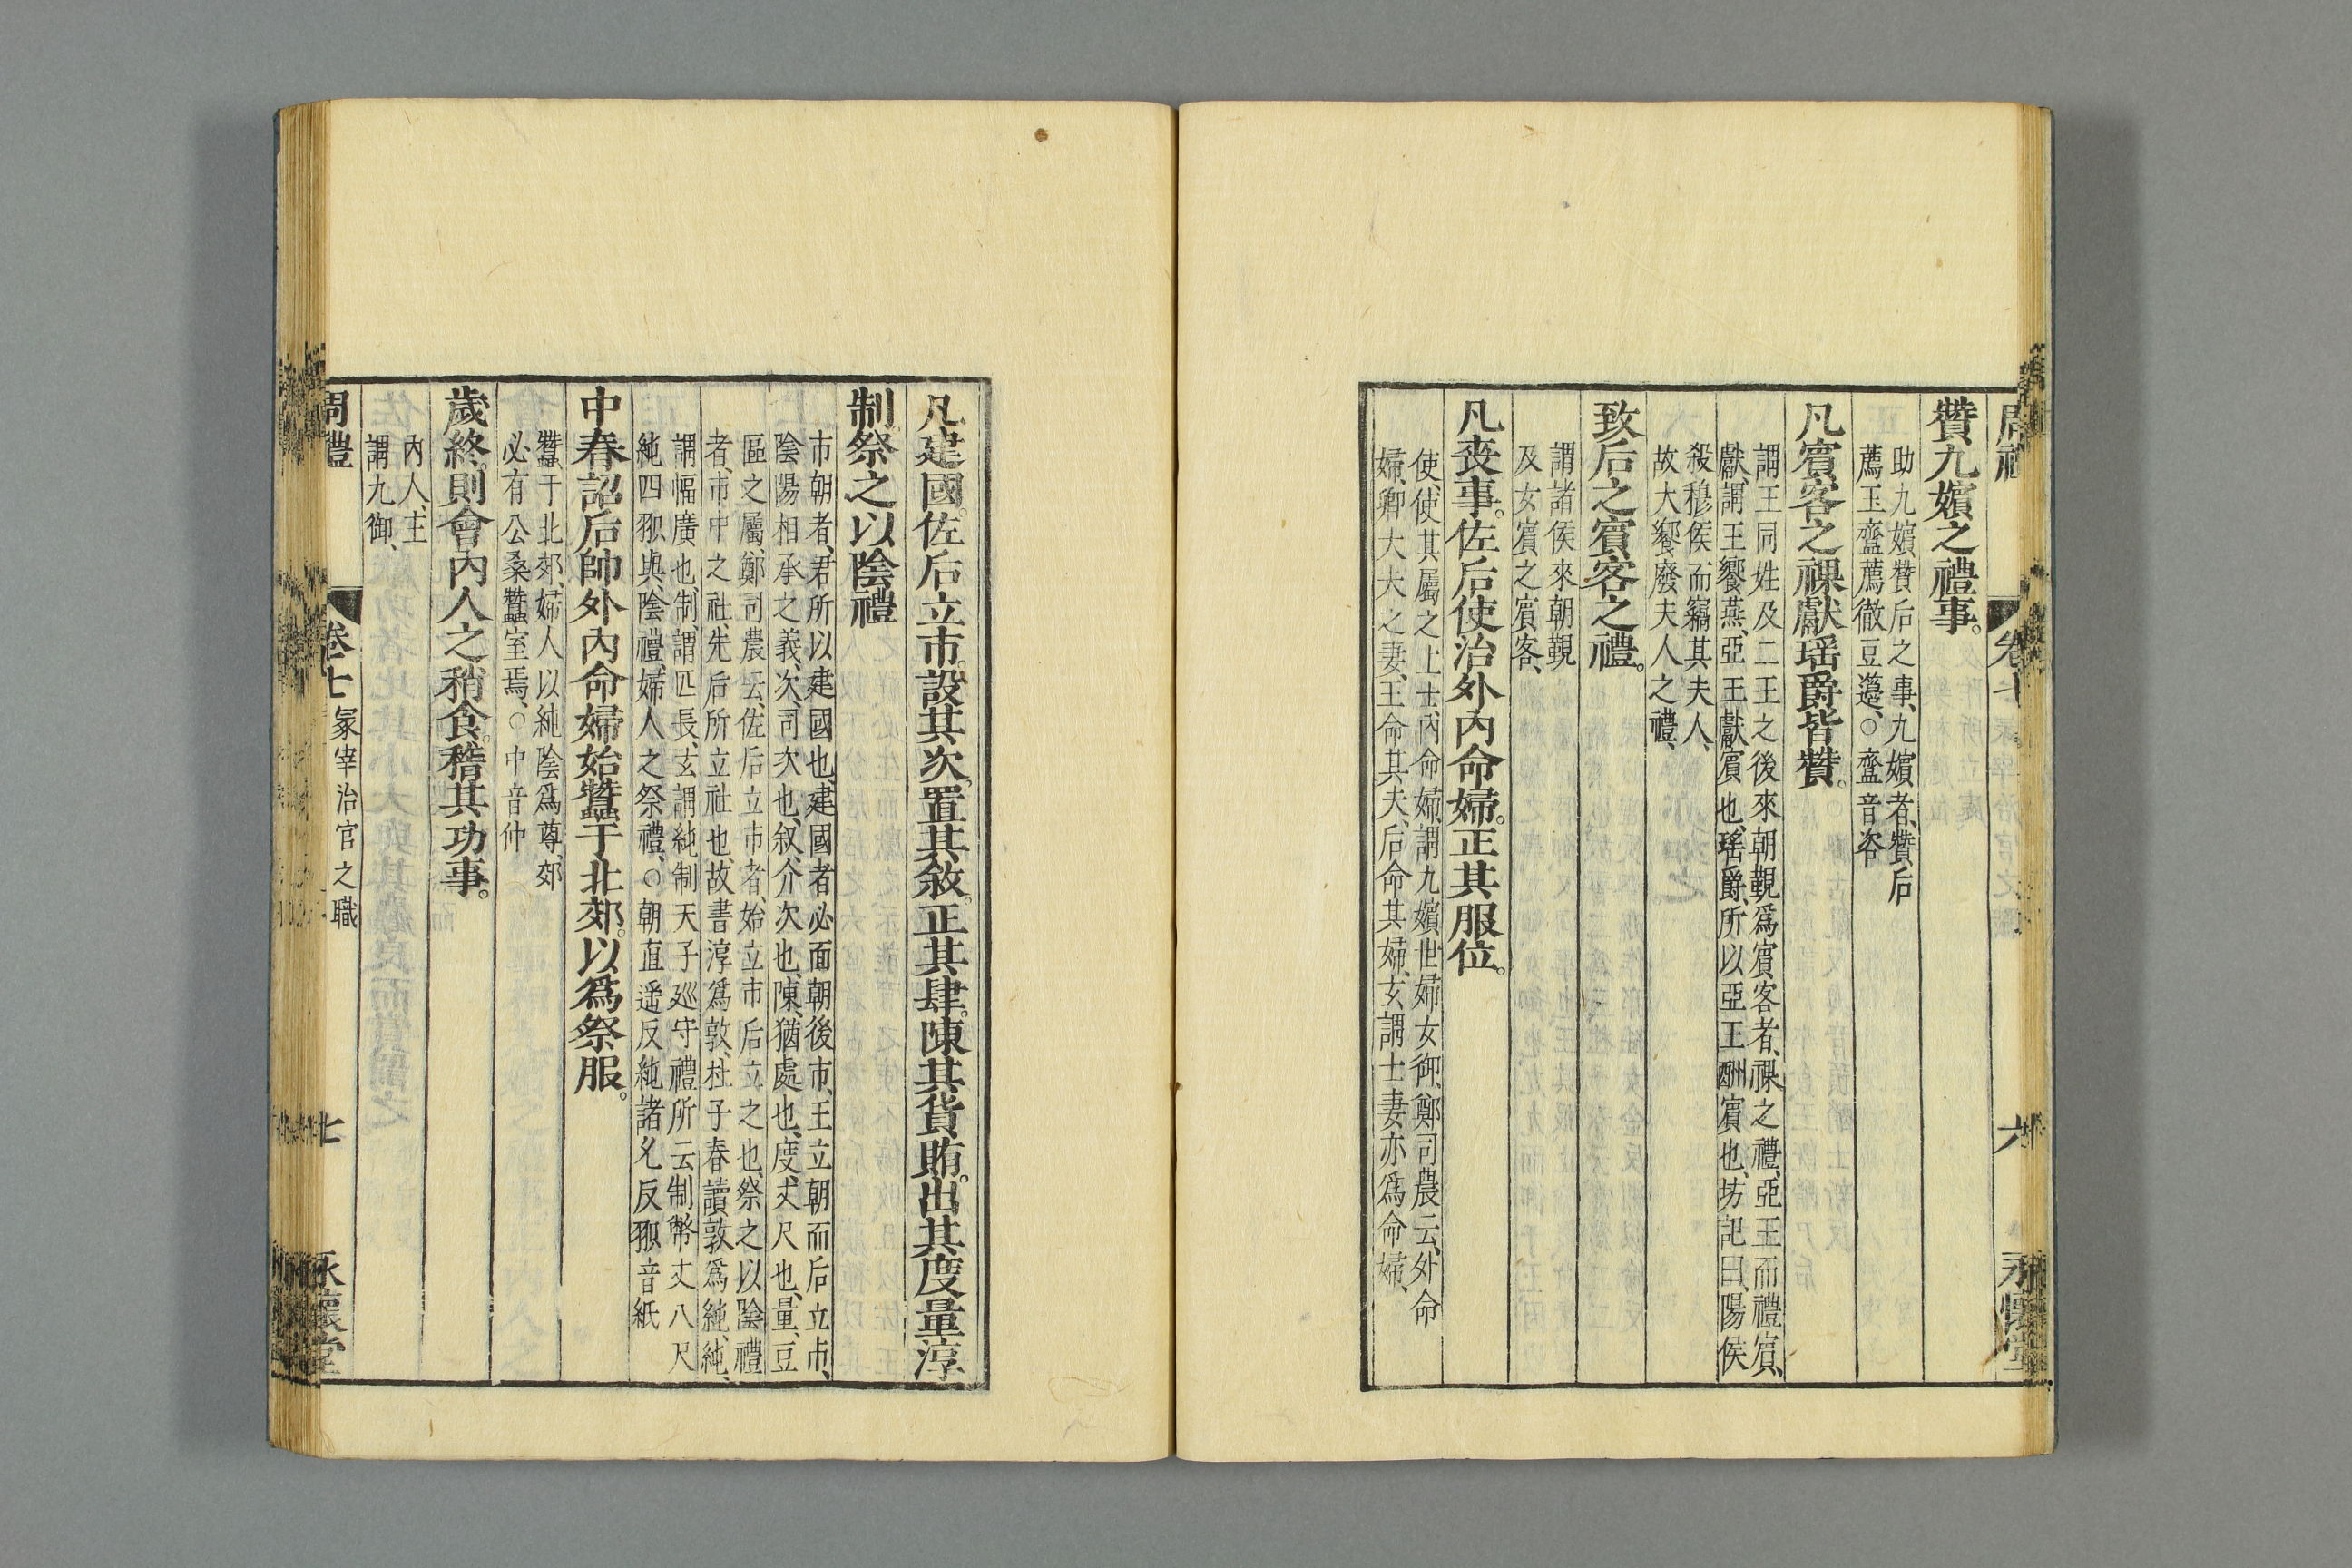 贊九嬪之禮事。
助九嬪贊后之事、九嬪者、贊后
薦玉齍薦徹豆籩、○齍音咨
凡賓客之祼獻瑤爵皆贊。
謂王同姓及二王之後來朝覲爲賓客者、祼之禮、亞王而禮賓、
獻、謂王饗燕、亞王獻賓也、瑤爵、所以亞王酬賓也、坊記曰、陽侯
殺穆侯而竊其夫人、
故大饗廢夫人之禮、
致后之賓客之禮。
謂諸侯來朝覲
及女賓之賓客、
凡喪事。佐后使治外內命婦。正其服位。
使、使其屬之上士、內命婦、謂九嬪世婦女御、鄭司農云、外命
婦、卿大夫之妻、王命其夫、后命其婦、玄謂士妻亦爲命婦、
凡建國。佐后立市。設其次。置其敘。正其肆。陳其貨賄。出其度量淳
制。祭之以陰禮
市朝者、君所以建國也、建國者必面朝後市、王立朝而后立市、
陰陽相承之義、次、司次也、叙、介次也、陳、猶處也、度、丈尺也、量、豆
區之屬、鄭司農云、佐后立市者、始立市后立之也、祭之以陰禮
者、市中之社、先后所立社也、故書淳爲敦、杜子春讀敦爲純、純、
謂幅廣也、制、謂匹長、玄謂純制天子巡守禮所云制幣丈八尺
純四㧗與、陰禮、婦人之祭禮、○朝直遙反純諸允反㧗音紙
中春詔后帥外內命婦始蠶于北郊。以爲祭服。
蠶于北郊、婦人以純陰爲尊、郊
必有公桑蠶室焉、○中音仲
歲終。則會內人之稍食。稽其功事。
內人、主
謂九御、
周禮 卷七 冢宰治官之職 七 永懷堂